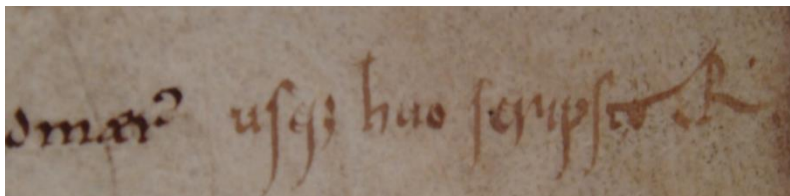 usqꝫ huc scripsit .R.